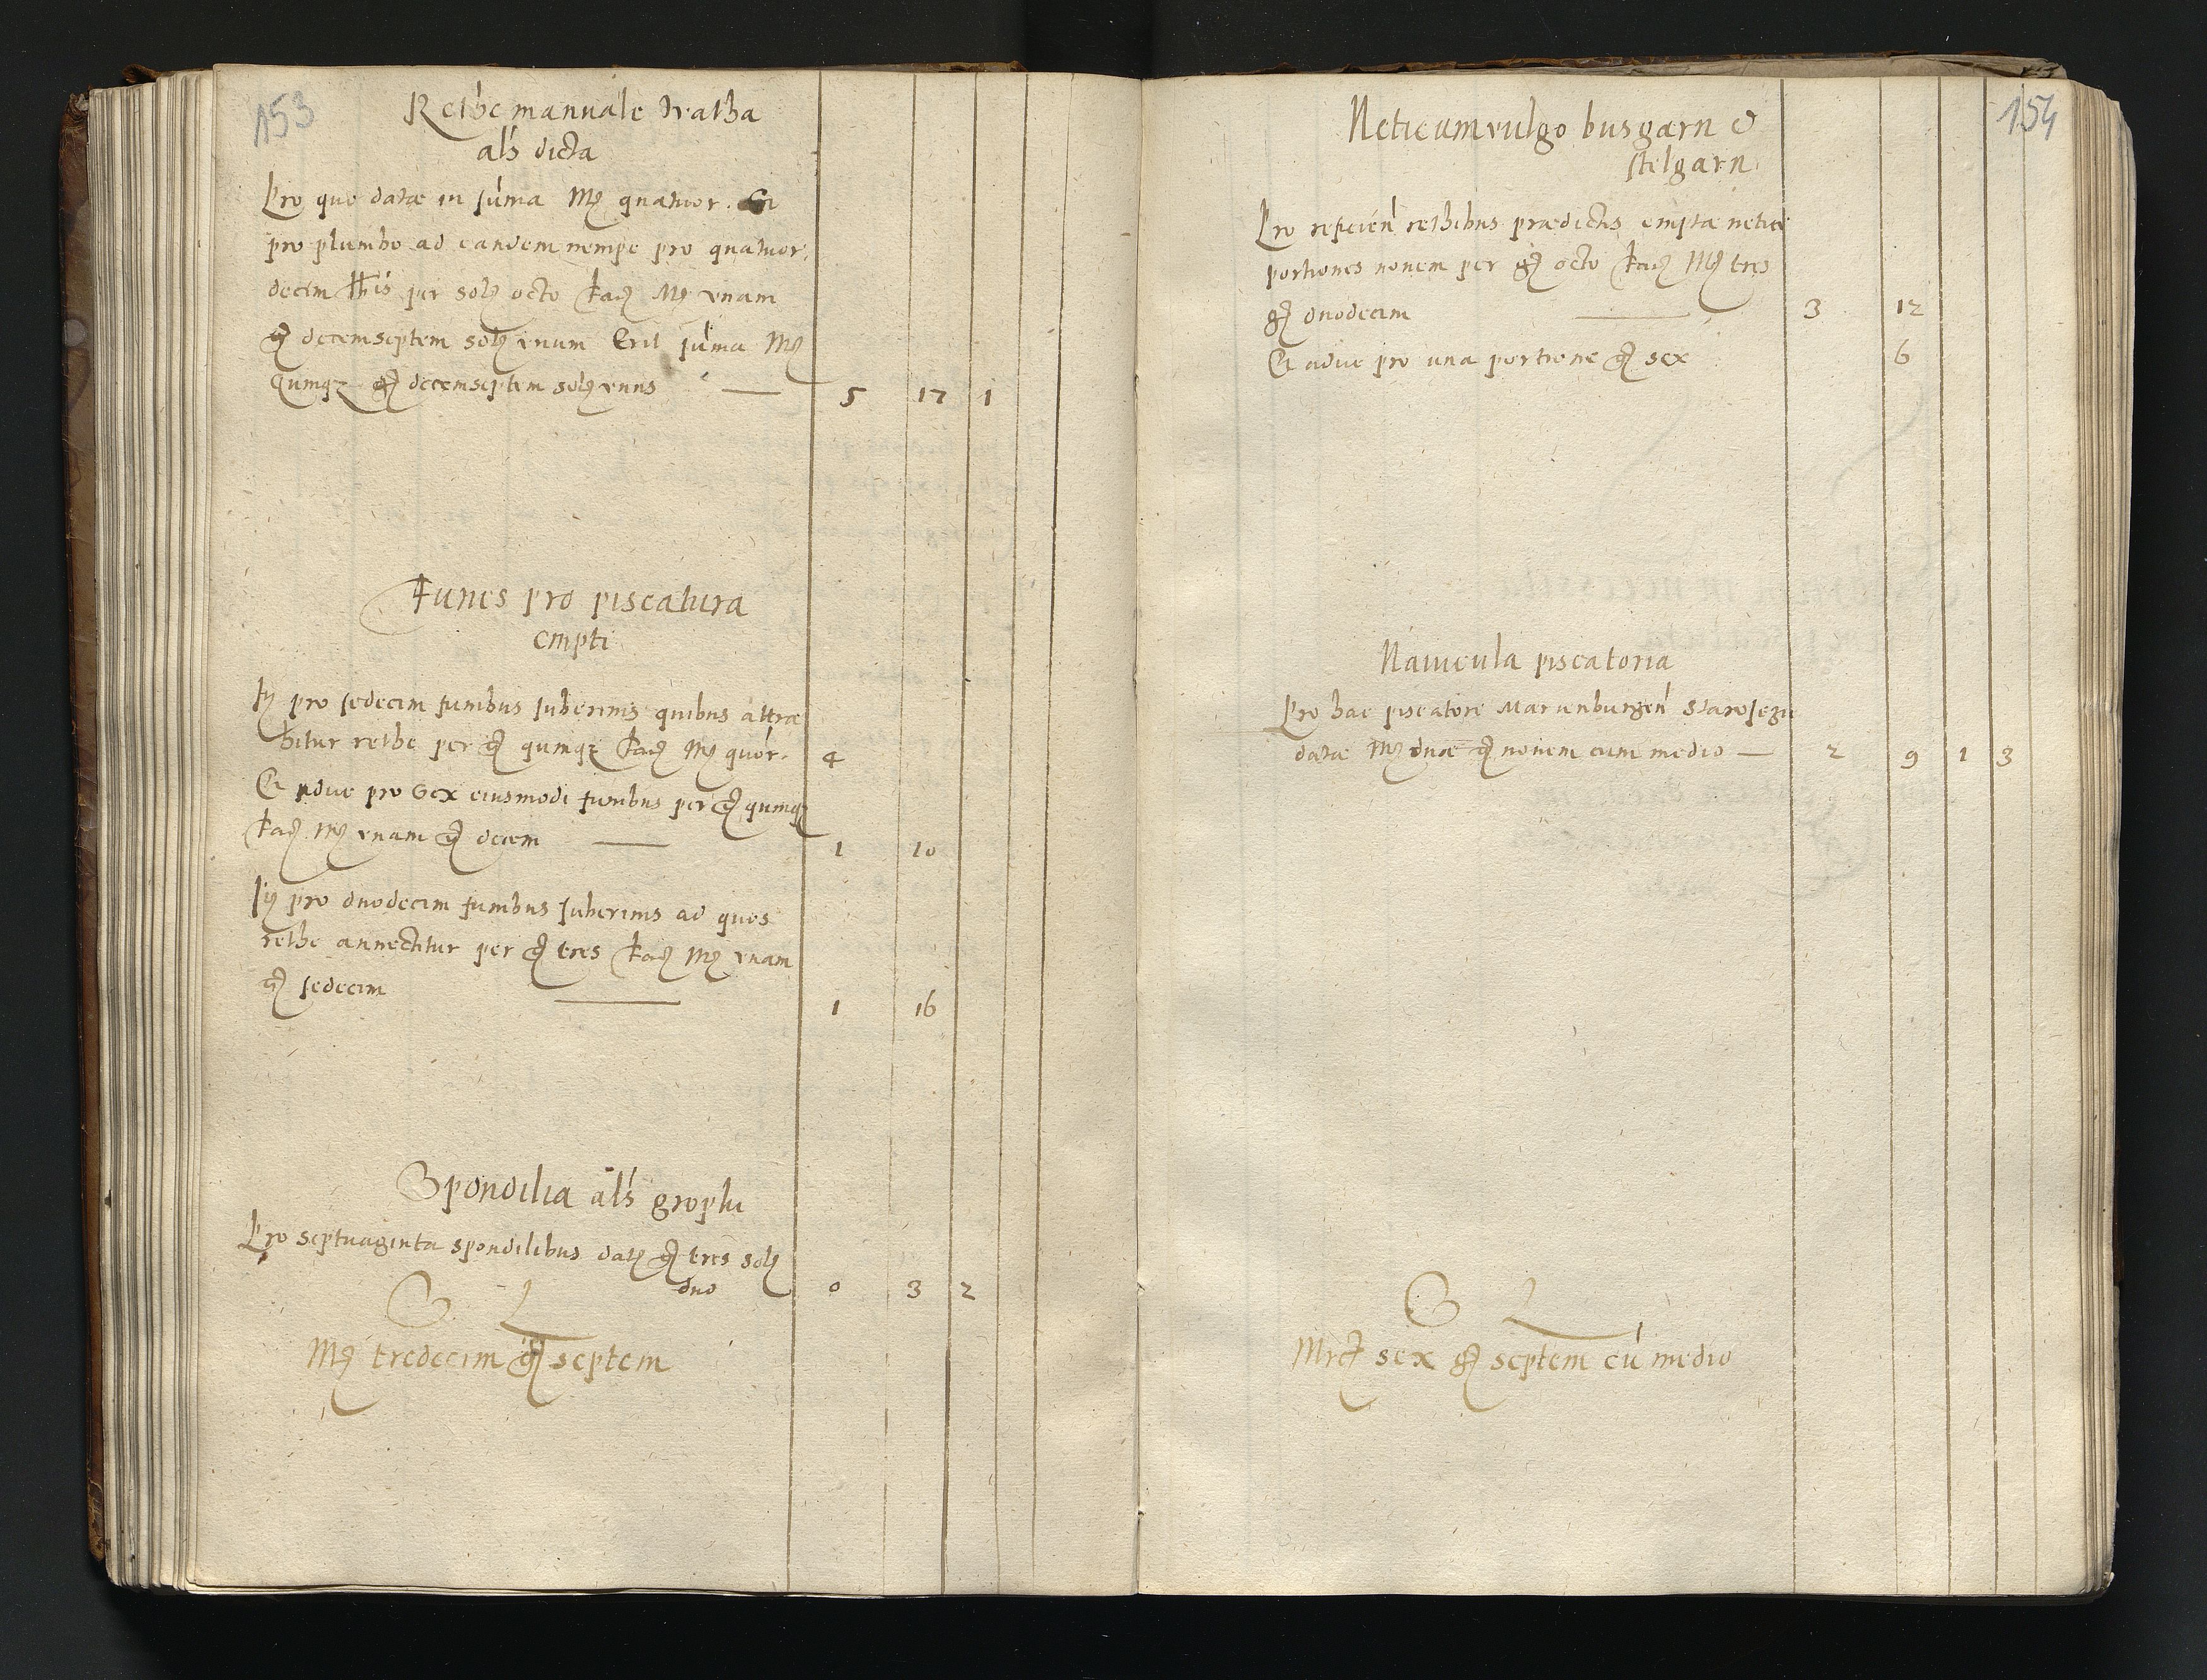 153
Rethe manuale
als dicta
Pro quo datæ in suma Mrc quatuor. Et
pro plumbo ad eandem nempe pro quatuor,
decim per sol octo fac Mrc vnam
gr decemseptem sol vnum Erit suma Mrc
quinqz gr decemseptem sol vnus — 5 17 1
Funes pro piscatura
empti
Ij pro sedecim funibus suberinis quibus attræ
hitur rethe per gr quinqz fac Mrc quor. 4
Et adue pro Sex eiusmodi funibus per gr quinqz
fac Mrc vnam gr decem — 1 10
Ij pro duodecim funibus suberinis ad quos
rethe annectitur per gr tres fac Mrc vnam
gr sedecim — 1 16
Spondilia als groplu
Pro septuaginta spondilibus dat gr tres sol
duo 0 3 2
S L
Mrc tredecim gr septem
154
Neticum vulgo busgarn &
stelgarn
Pro reficien rethibus prædictis emptæ netice
portiones nonem per gr octo fac Mrc tres
gr duodecim — 3 12
Et adue pro una portione gr sex 6
Nauicula piscatoria
Pro hac piscatore Marienburgen
datæ Mrc duæ gr nonem cum medio — 2 9 1 3
S L
Mrc sex gr septem cu medio